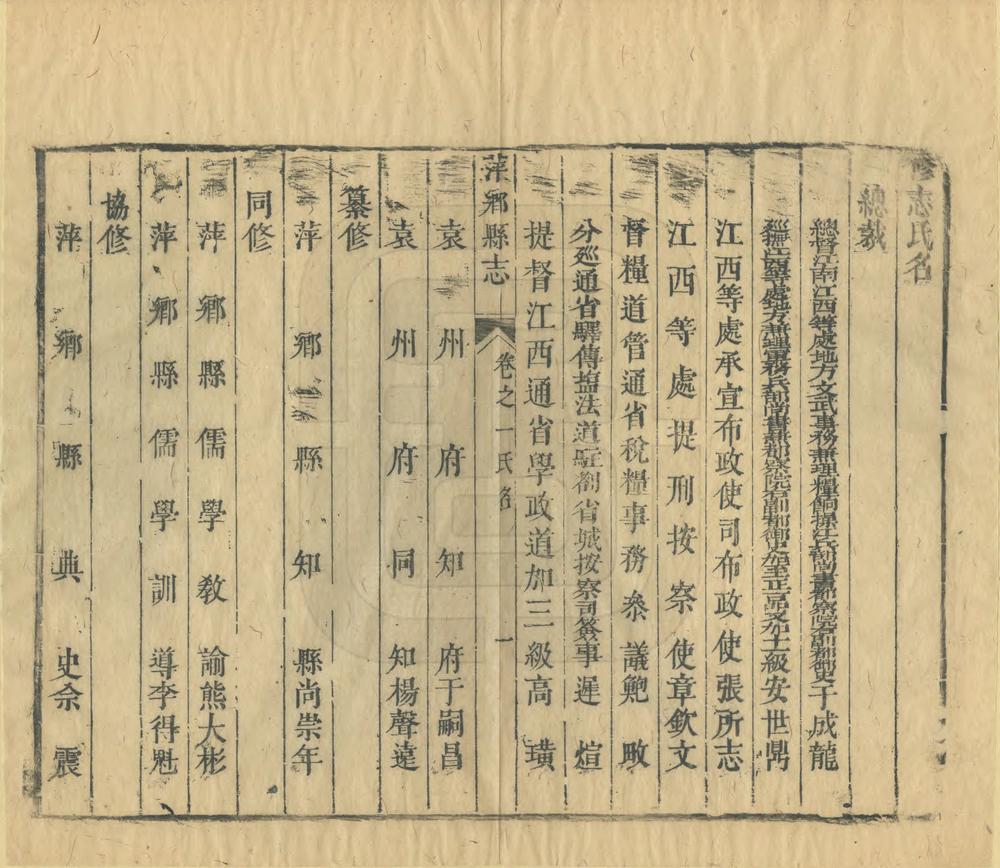 修志氏名
總裁
總督江南江西等處地方文武事務兼理糧餉操江兵部尚書都察院右副都御史于成龍
兼理軍務兵部尚書兼都察院右副都御史加至正一品又加十一級安世鼎
江西等處承宣布政使司布政使張所志
江西等處提刑按察使章欽文
督糧道管通省稅糧事務叅議鮑畋
分廵通省驛傳塩法道駐劄省城按察司簽事遲煊
提督江西通省學政道加三級高璜
萍鄉縣志 卷之一 氏名 一
袁州府知府于嗣昌
袁州府同知楊聲遠
纂修
萍鄉縣知縣尚崇年
同修
萍鄉縣儒學教諭熊大彬
萍鄉縣儒學訓導李得魁
協修
萍鄉縣典史佘震